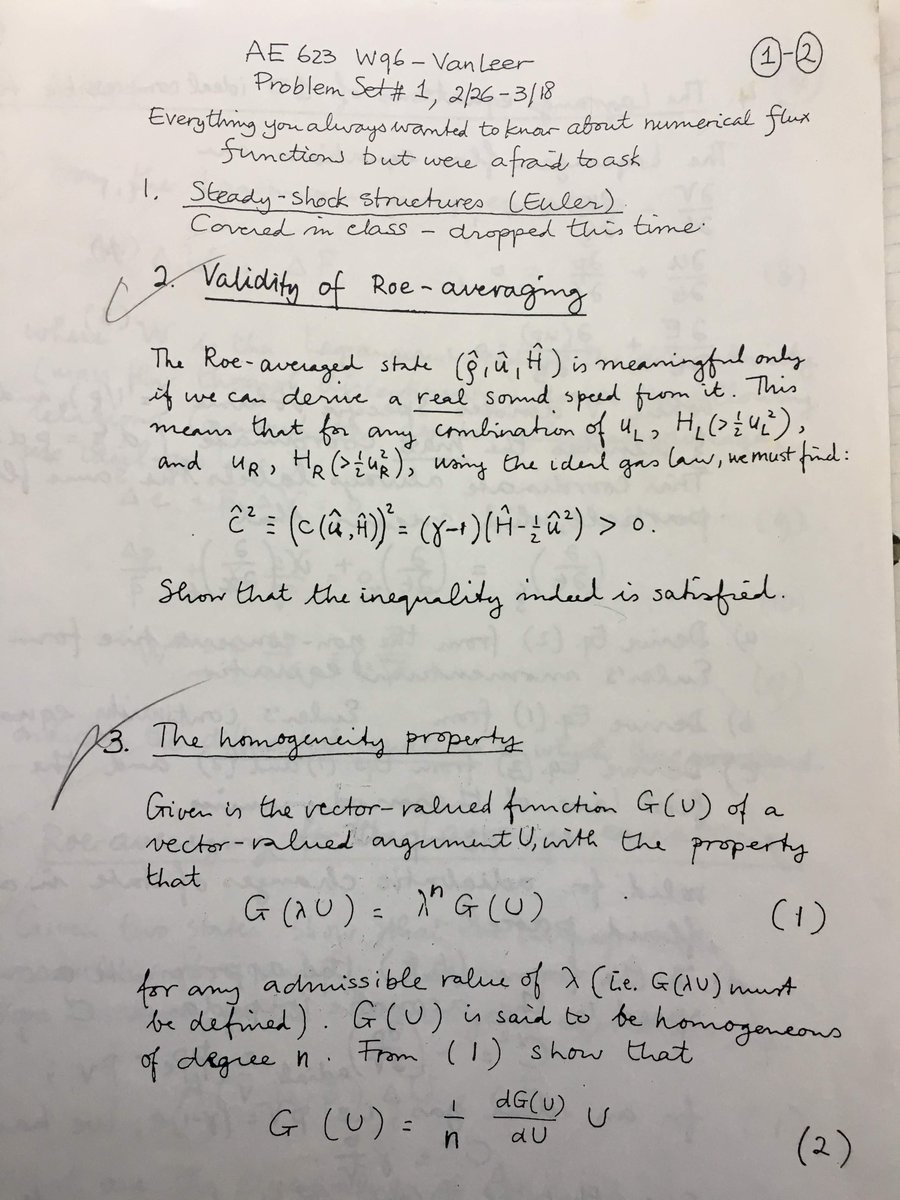 AE 623 W96 - Van Leer
①-②
Problem Set # 1, 2/26 - 3/18
Everything you always wanted to know about numerical flux
functions but were afraid to ask
1. Steady-shock structures (Euler)
Covered in class - dropped this time.
2. Validity of Roe-averaging
The Roe-averaged state (ρ̂, û, Ĥ) is meaningful only
if we can derive a real sound speed from it. This
means that for any combination of u_L, H_L (>½u_L²),
and u_R, H_R (>½u_R²), using the ideal gas law, we must find:
ĉ² ≡ (c(û,Ĥ))² = (γ-1)(Ĥ-½û²) > 0.
Show that the inequality indeed is satisfied.
3. The homogeneity property
Given is the vector-valued function G(U) of a
vector-valued argument U, with the property
that
G(λU) = λⁿ G(U) (1)
for any admissible value of λ (i.e. G(λU) must
be defined). G(U) is said to be homogeneous
of degree n. From (1) show that
G(U) = 1/n dG(U)/dU U (2)